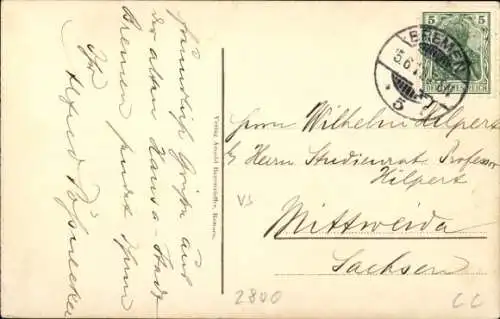 freundliche Grüße aus
der alten Hansa-Stadt
Bremen sendet Ihnen
Ihr
Alfred
Verlag Arnold Remen.
5
5
DEUTSCHES REICH
BREMEN
5.6.
* 5
Herrn Wilhelm Hilpert
Herrn Studienrat Professor
Hilpert
Mittweida
Sachsen
VS
2800
CC